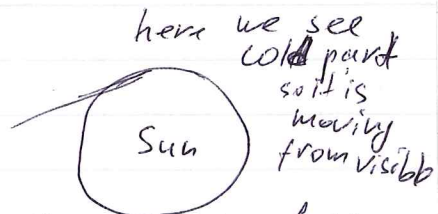 here we see
cold part
so it is
moving
from visibb
Sun